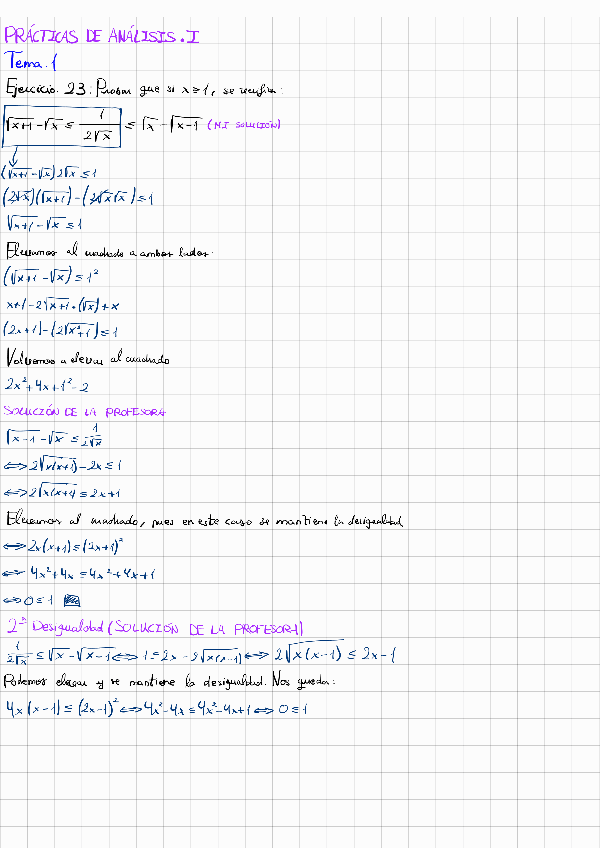 PRÁCTICAS DE ANÁLISIS. I
Tema. 1
Ejercicio. 23: Probar que si x ≥ 1, se verifica:
√(x+1) - √x ≤ 1/(2√x) ≤ √x - √(x-1) (MI SOLUCIÓN)
(√(x+1) - √x) 2√x ≤ 1
(2√x)(√(x+1)) - (2√x√x) ≤ 1
√(x+1) - √x ≤ 1
Elevamos al cuadrado a ambos lados.
(√(x+1) - √x) ≤ 1²
x+1 - 2√(x+1) · (√x) + x
(2x+1) - (2√(x²+1)) ≤ 1
Volvemos a elevar al cuadrado
2x² + 4x + 1² - 2
SOLUCIÓN DE LA PROFESORA
√(x-1) - √x ≤ 1/(2√x)
⟺ 2√(x(x+1)) - 2x ≤ 1
⟺ 2√(x(x+1)) ≤ 2x+1
Elevamos al cuadrado, pues en este caso se mantiene la desigualdad
⟺ 2x(x+1) ≤ (2x+1)²
⟺ 4x² + 4x ≤ 4x² + 4x + 1
⟺ 0 ≤ 1
2ª Desigualdad (SOLUCIÓN DE LA PROFESORA)
1/(2√x) ≤ √x - √(x-1) ⟺ 1 ≤ 2x - 2√(x(x-1)) ⟺ 2√(x(x-1)) ≤ 2x - 1
Podemos elevar y se mantiene la desigualdad. Nos queda:
4x(x-1) ≤ (2x-1)² ⟺ 4x² - 4x ≤ 4x² - 4x + 1 ⟺ 0 ≤ 1